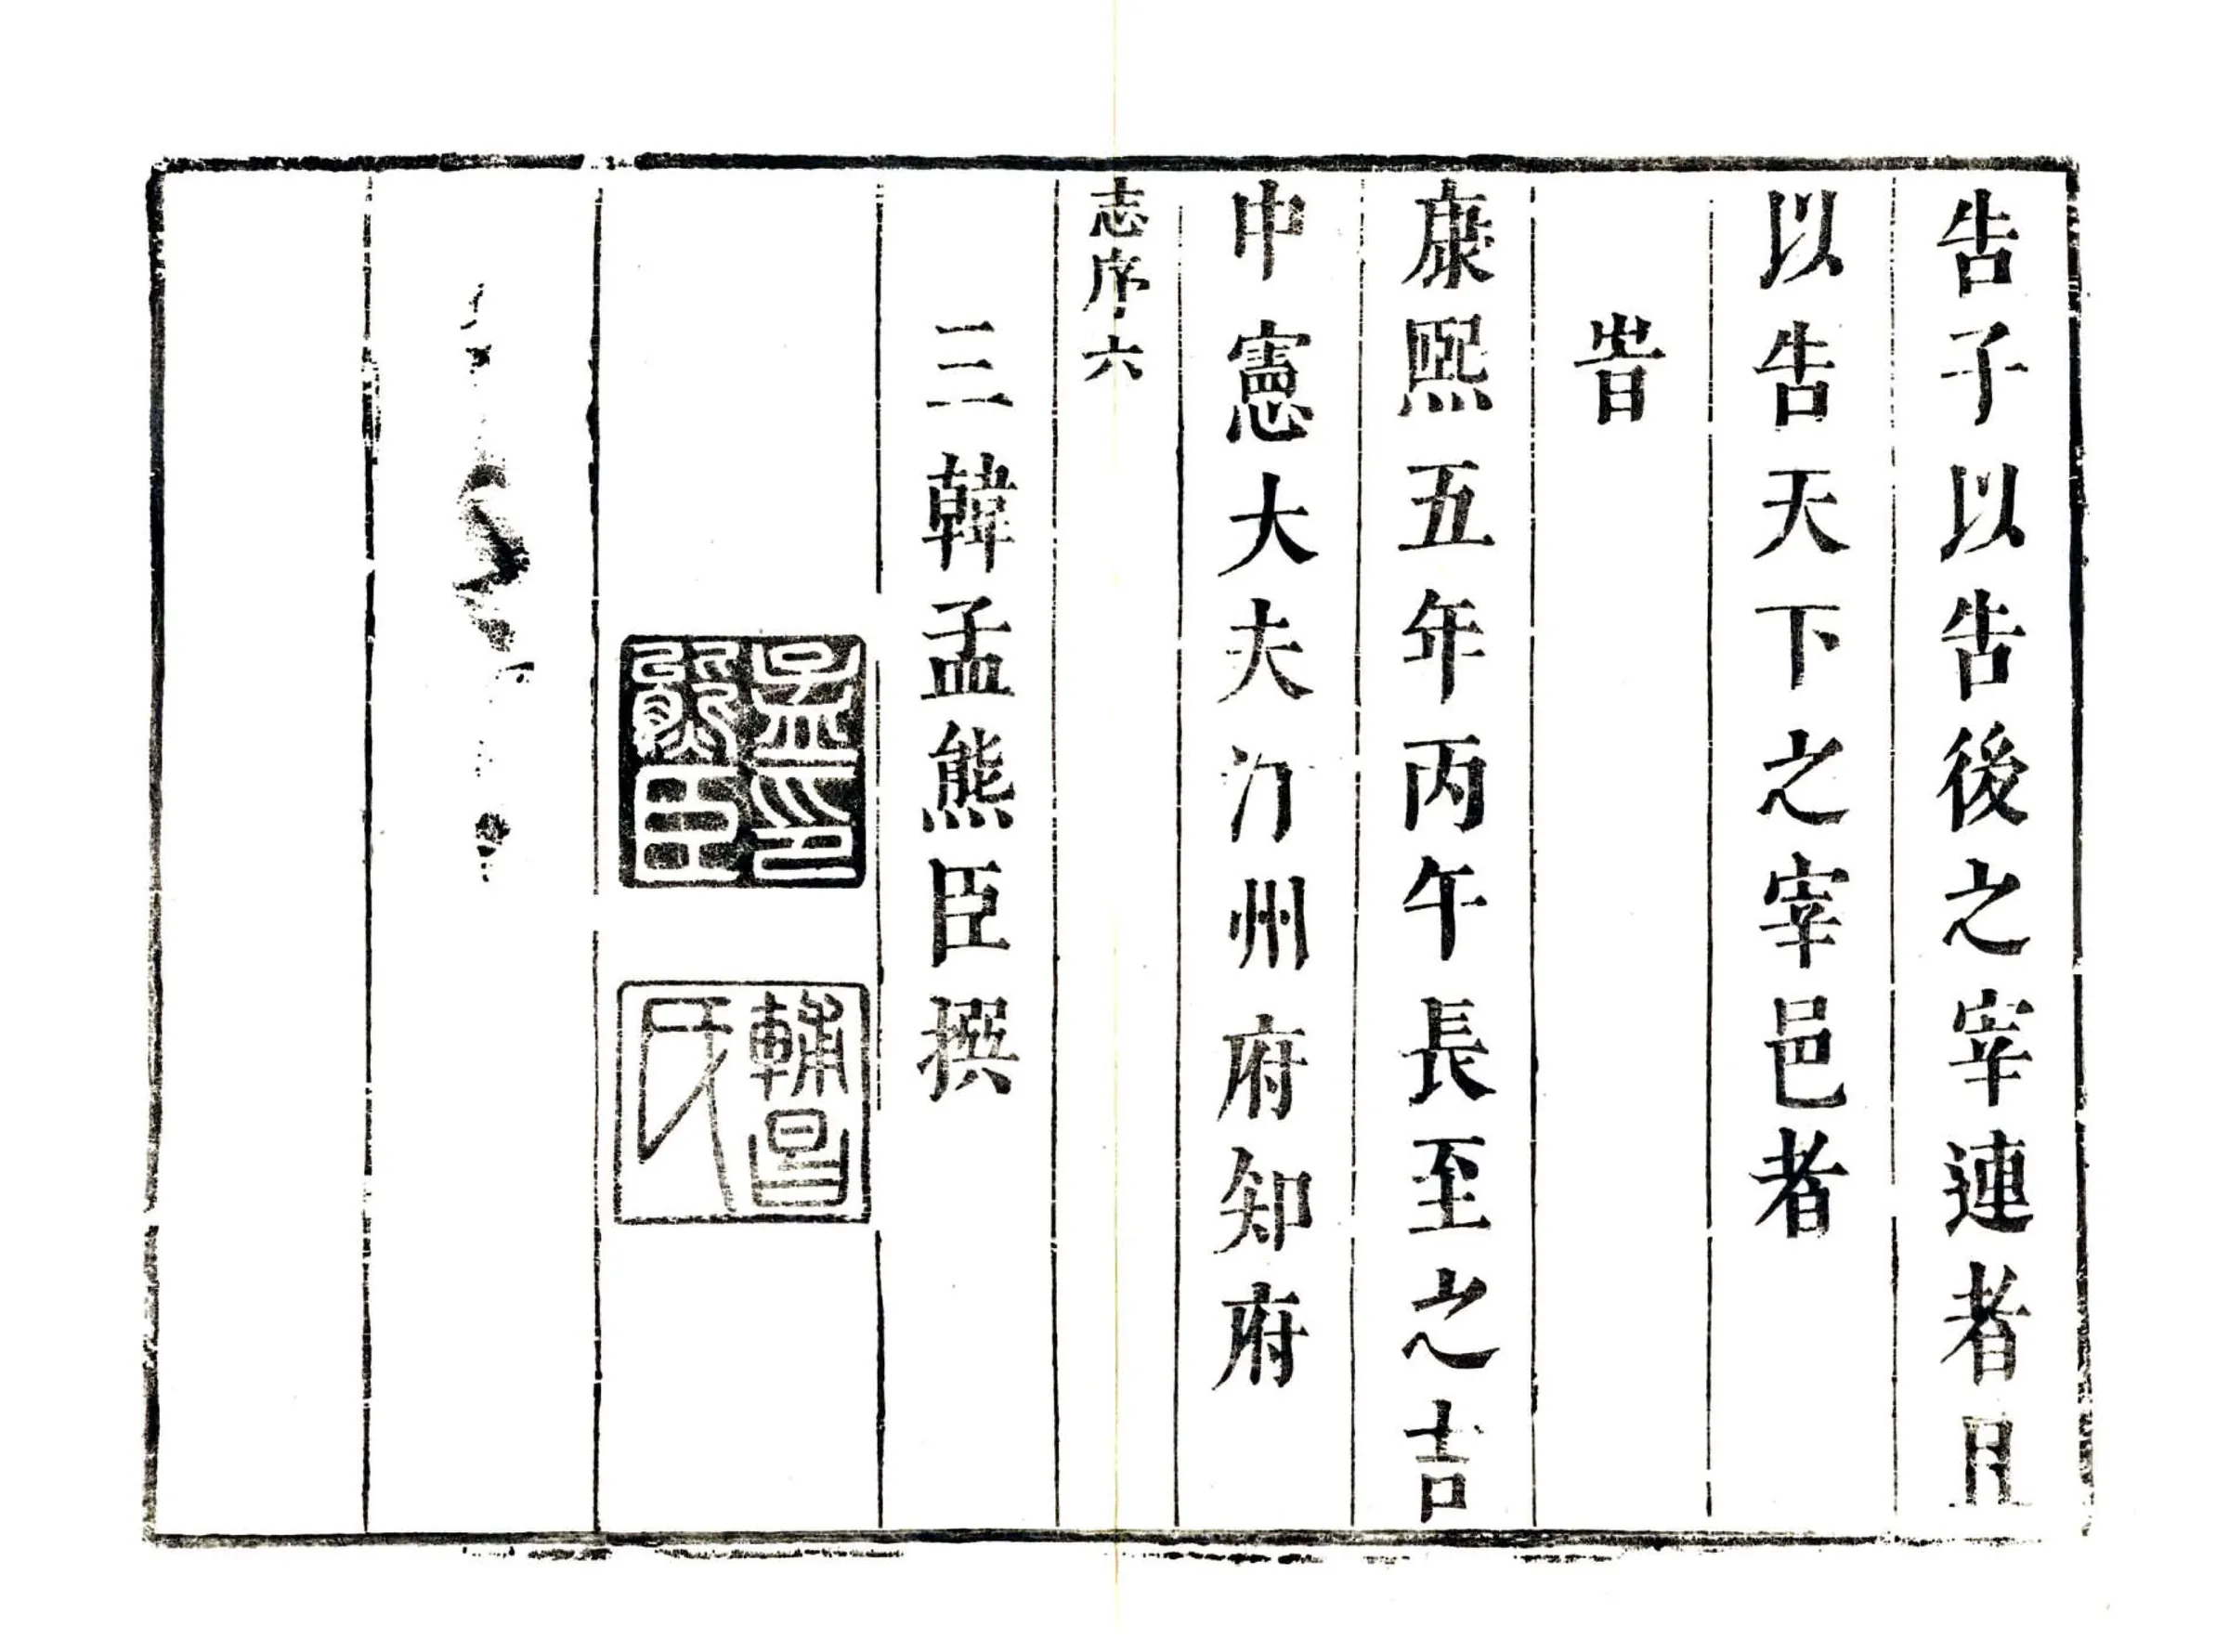 告子以告後之宰連者且
以告天下之宰邑者
旹
康熙五年丙午長至之吉
中憲大夫汀州府知府
志序六
三韓孟熊臣撰
孟印熊臣
輔昌氏